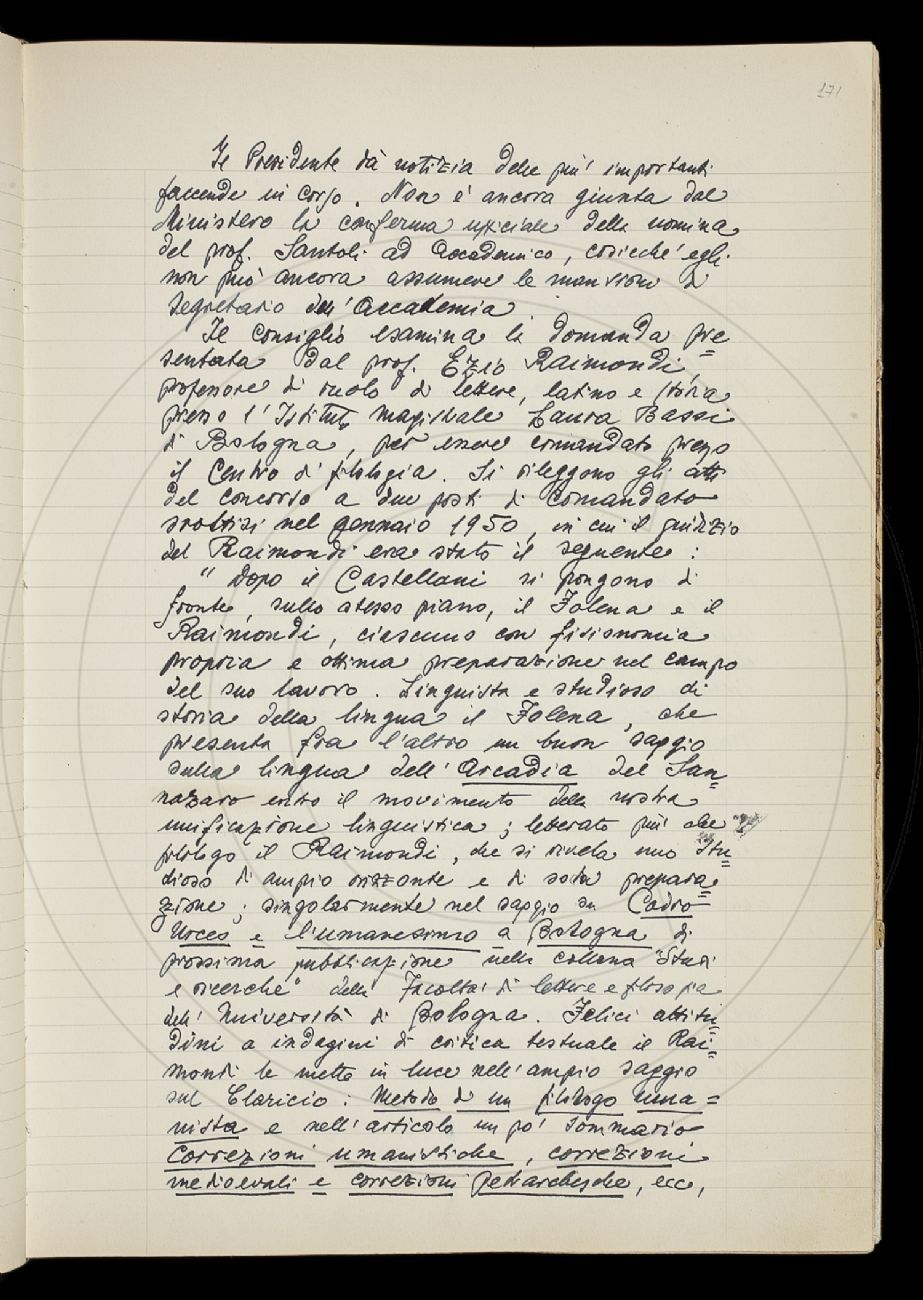 171
Il Presidente dà notizia delle più importanti
faccende in corso. Non è ancora giunta dal
Ministero la conferma ufficiale della nomina
del prof. Santoli ad Accademico, cosicché egli
non può ancora assumere le mansioni di
segretario dell'Accademia
Il consiglio esamina la domanda pre=
sentata dal prof. Ezio Raimondi,
professore di ruolo di lettere, latino e storia
presso l'Istituto magistrale Laura Bassi
di Bologna, per essere comandato presso
il Centro di filologia. Si rileggono gli atti
del concorso a due posti di Comandato
svoltisi nel gennaio 1950, in cui il giudizio
del Raimondi era stato il seguente:
"Dopo il Castellani si pongono di
fronte, sullo stesso piano, il Folena e il
Raimondi, ciascuno con fisionomia
propria e ottima preparazione nel campo
del suo lavoro. Linguista e studioso di
storia della lingua il Folena, che
presenta fra l'altro un buon saggio
sulla lingua dell'Arcadia del San=
nazaro entro il movimento della nostra
unificazione linguistica; letterato più che
filologo il Raimondi, che si rivela uno stu=
dioso di ampio orizzonte e di soda prepara=
zione; singolarmente nel saggio su Codro
Urceo e l'umanesimo a Bologna di
prossima pubblicazione nella collana "Studi
e ricerche" della Facoltà di lettere e filosofia
dell'Università di Bologna. Felici attitu=
dini a indagini di critica testuale il Rai=
mondi le mette in luce nell'ampio saggio
sul Claricio: Metodo di un filologo uma=
nista e nell'articolo un po' sommario
Correzioni umanistiche, correzioni
medioevali e correzioni petrarchesche, ecc,